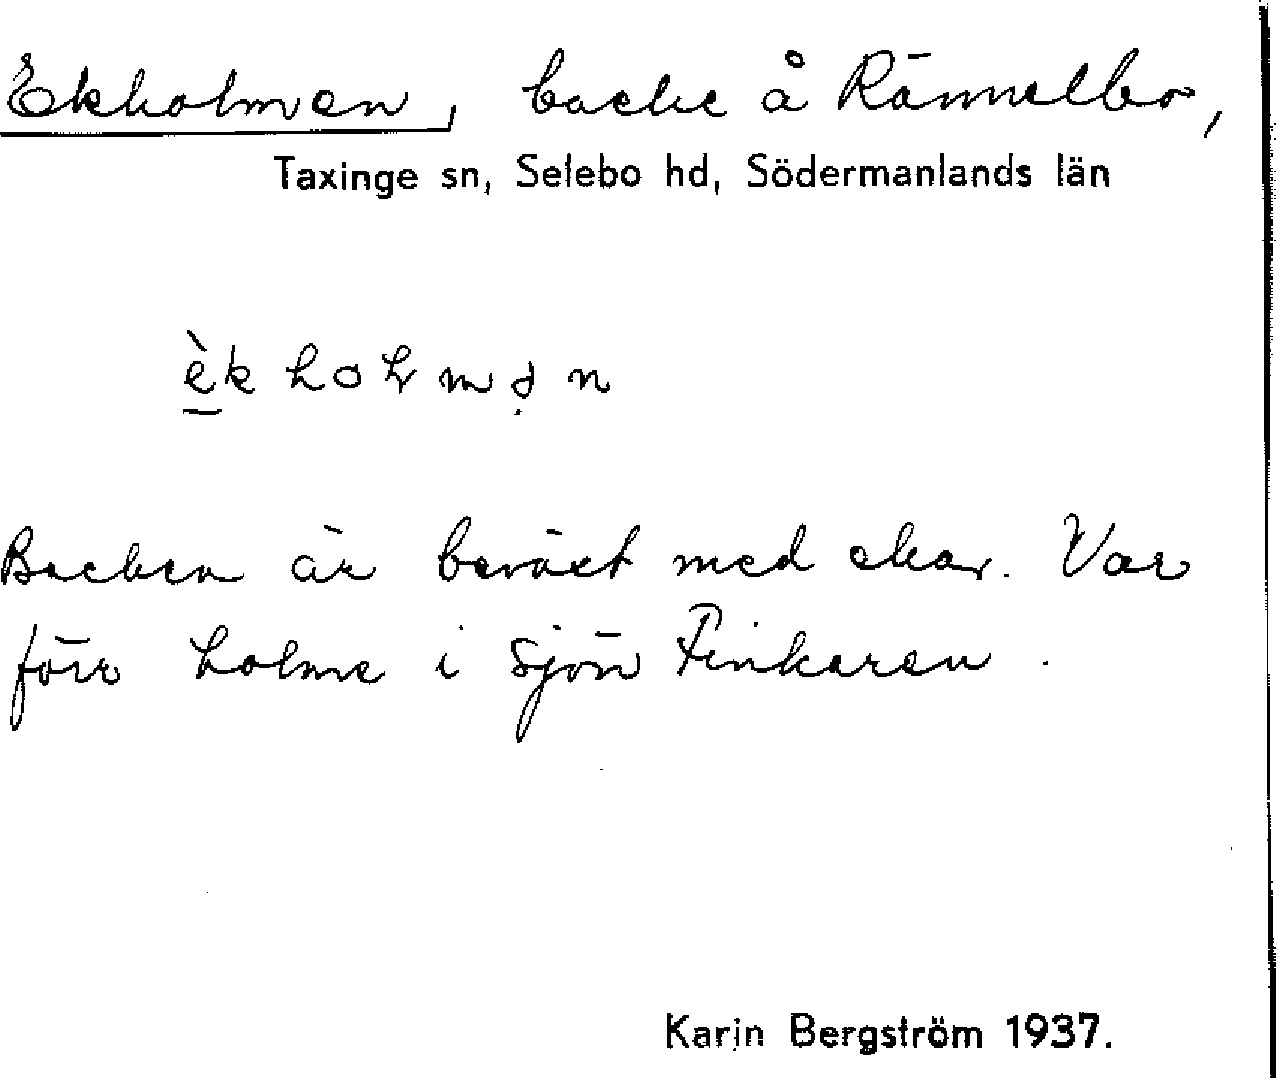 Ekholmen, backe å Rännelbo,
Taxinge sn, Selebo hd, Södermanlands län
Backen är beväxt med ekar. Var
förr holme i sjön Finkaren.
Karin Bergström 1937.